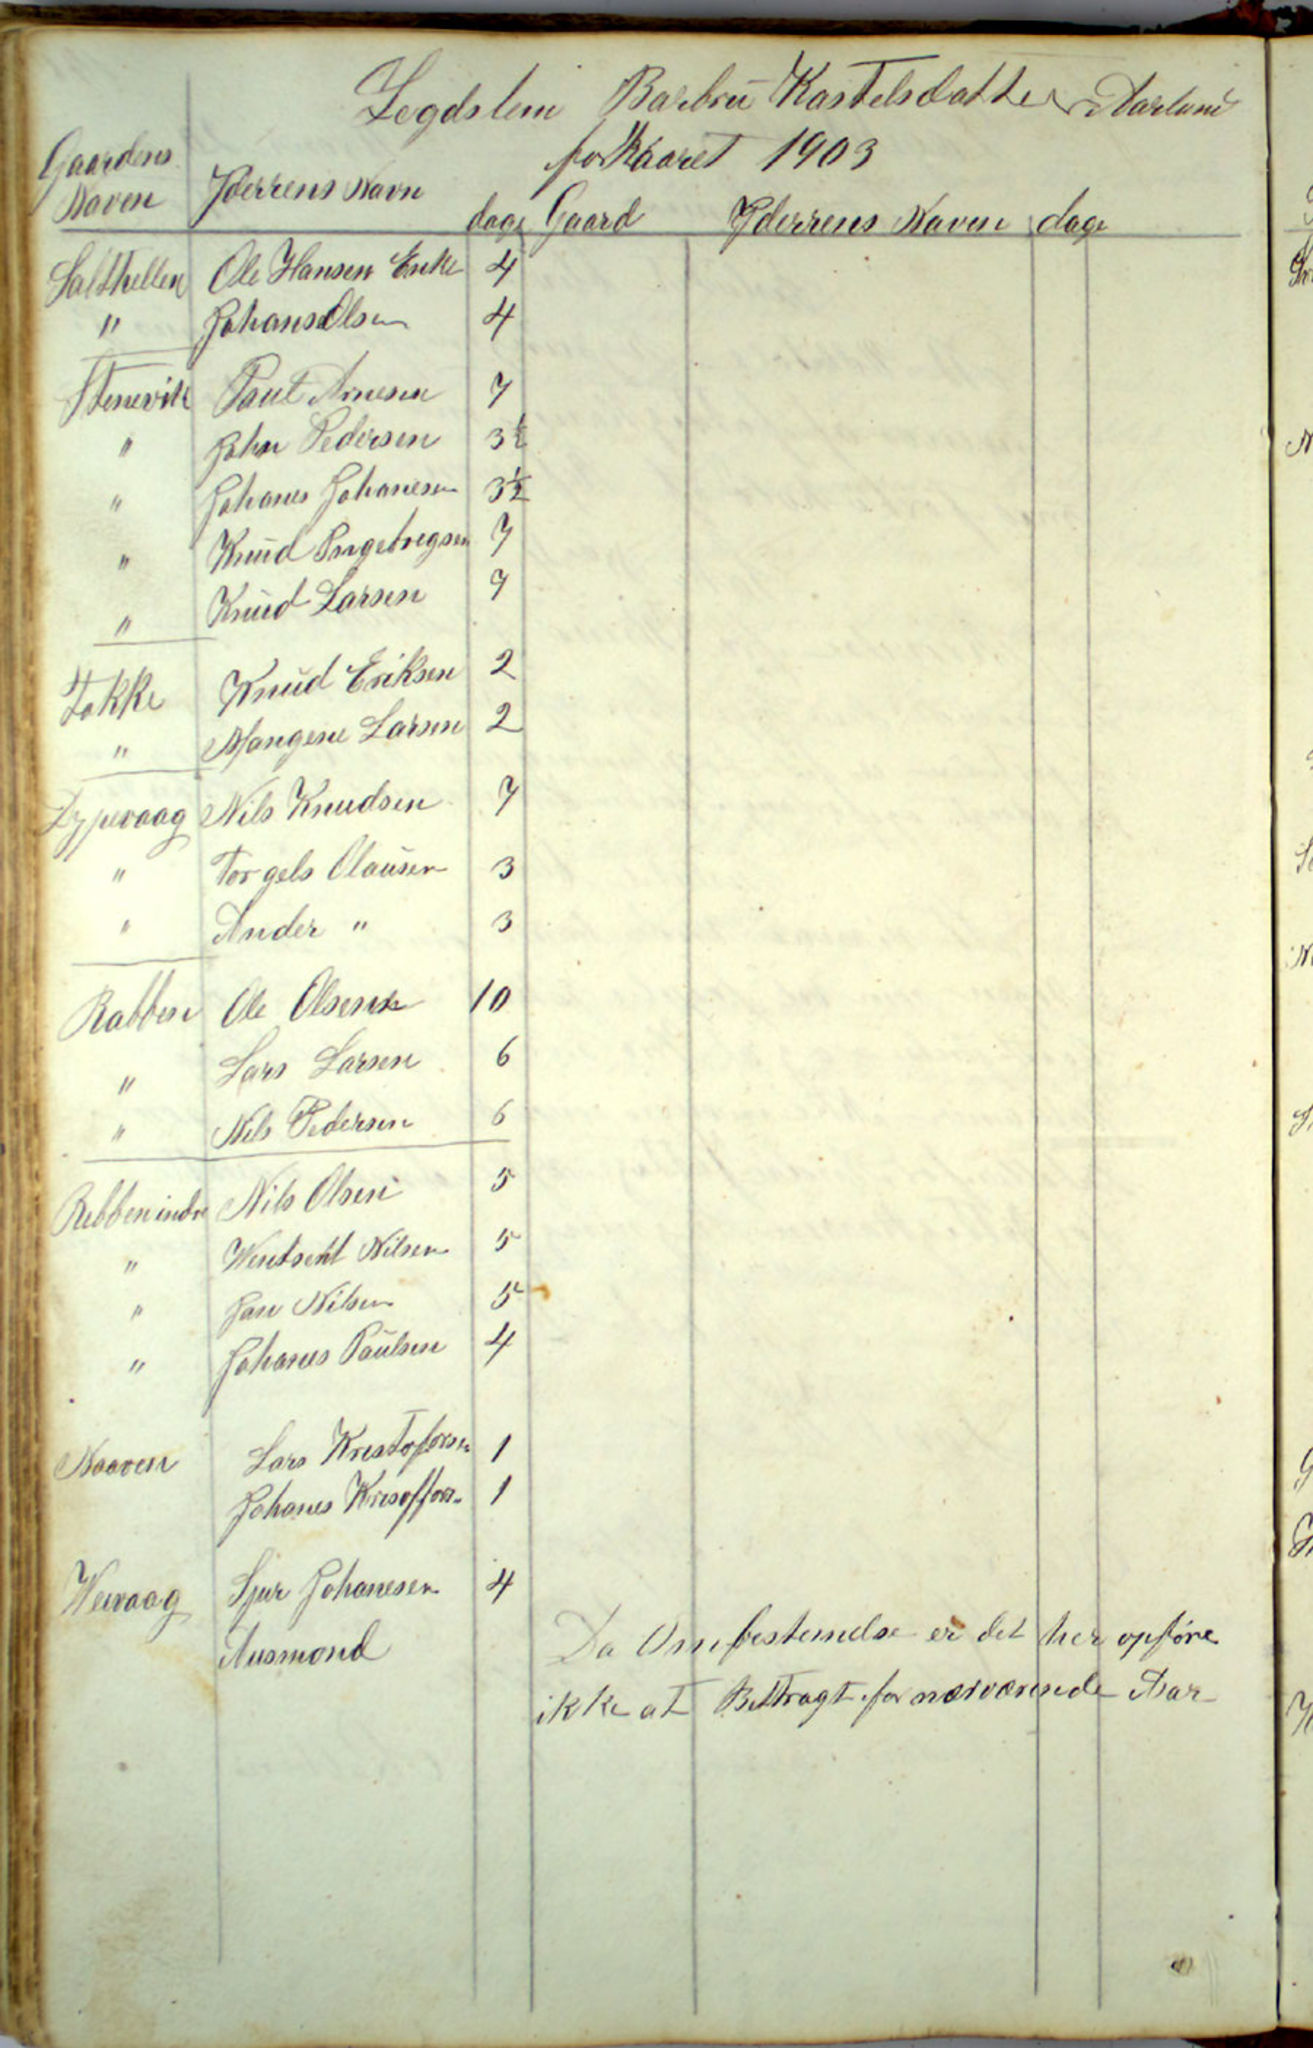 Legdslem Barbru Kastelsdatter Aarland
for Aaret 1903
Gaardens Naven Yderrens Navn dage Gaard Yderrens Naven dage
Salthellen Ole Hansen Enke 4
" Johans Olsen 4
Stenevik Paul Arnesen 7
" John Pedersen 3½
" Johanes Johanesen 3½
" Knud Ingebregsen 7
" Knud Larsen 7
Tokke Knud Eriksen 2
" Mangene Larsen 2
Dypevaag Nils Knudsen 7
" Torgels Olausen 3
" Ander " 3
Rabben Ole Olsen 10
" Lars Larsen 6
" Nils Pedersen 6
Rebben indre Nils Olsen 5
" Nilsen 5
" Jan Nilsen 5
" Johanes Paulsen 4
Naaven Lars Kristofersen 1
Johanes Krisoffers. 1
Weivaag Sjur Johanesen 4
Ausmond
Da Om bestemelse er det her opføre
ikke at Bettragt for nærværende Aar